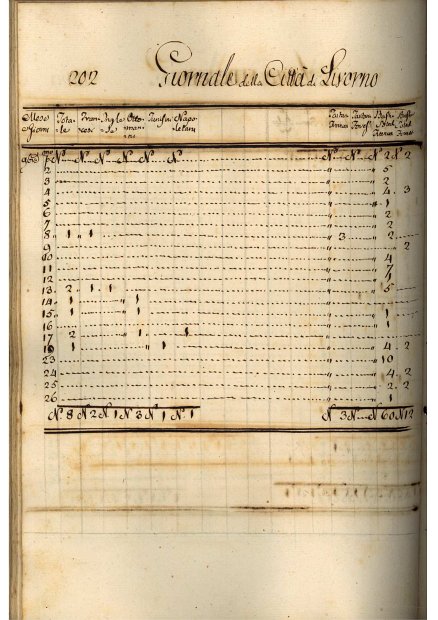 202 Giornale della Città di Livorno
Mese Tota- Fran- Ingle- Otto- Tunisi- Napo-
Giorni le cesi se man- letani
N° N° N° N° N° N° N° N° N° 2 N° 2
2 " " 5
3 " " 2
4 " " 4 3
5 " " 1
6 " " 2
7 " " 2
8 1 " 1 " 3 " 2
9 " " 2
10 " " 4
11 " " 7
12 " " 1
13 2 1 1 " " 5
14 1 " 1 " "
15 1 " 1 " " 1
16 " " 1
17 2 " 1 1 " "
18 1 " 1 " " 4 2
23 " " 10
24 " " 4 2
25 " " 2 2
26 " " 1
N° 8 N° 2 N° 1 N° 3 N° 1 N° 1 N° 3 N° N° 60 N° 12